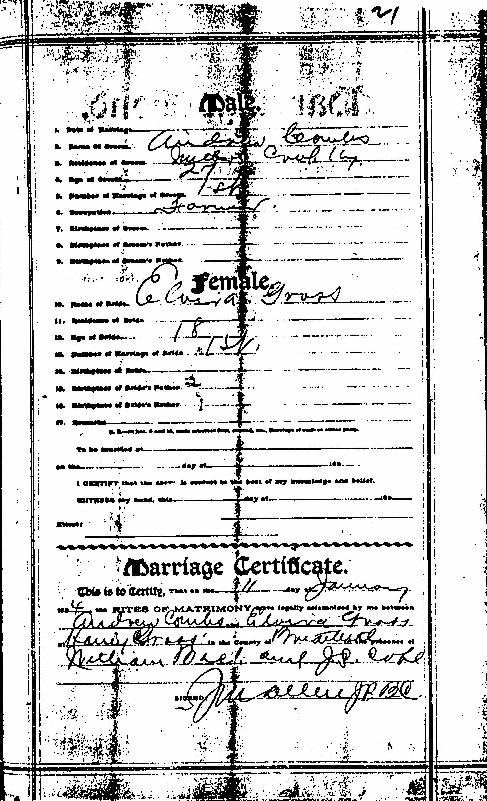 21
Male.
1. Date of Marriage
2. Name of Groom Andrew Combs
3. Residence of Groom
4. Age of Groom 27
5. Number of Marriage of Groom 1st
6. Occupation Farmer
7. Birthplace of Groom
8. Birthplace of Groom's Father
9. Birthplace of Groom's Mother
Female.
10. Name of Bride Elvira Gross
11. Residence of Bride
12. Age of Bride 18
13. Number of Marriage of Bride 1st
14. Birthplace of Bride
15. Birthplace of Bride's Father
16. Birthplace of Bride's Mother
17. Remarks
To be married at
on the day of 19
I CERTIFY that the above is correct to the best of my knowledge and belief.
WITNESS my hand, this day of 19
Attest:
Marriage Certificate.
This is to Certify, That on the 11 day of January
the RITES OF MATRIMONY were legally solemnized by me between
Andrew Combs and Elvira Gross
at Harvy Gross in the County of Breathitt in the presence of
William and J.S. Cope
SIGNED J M Allen J.P.B.C.